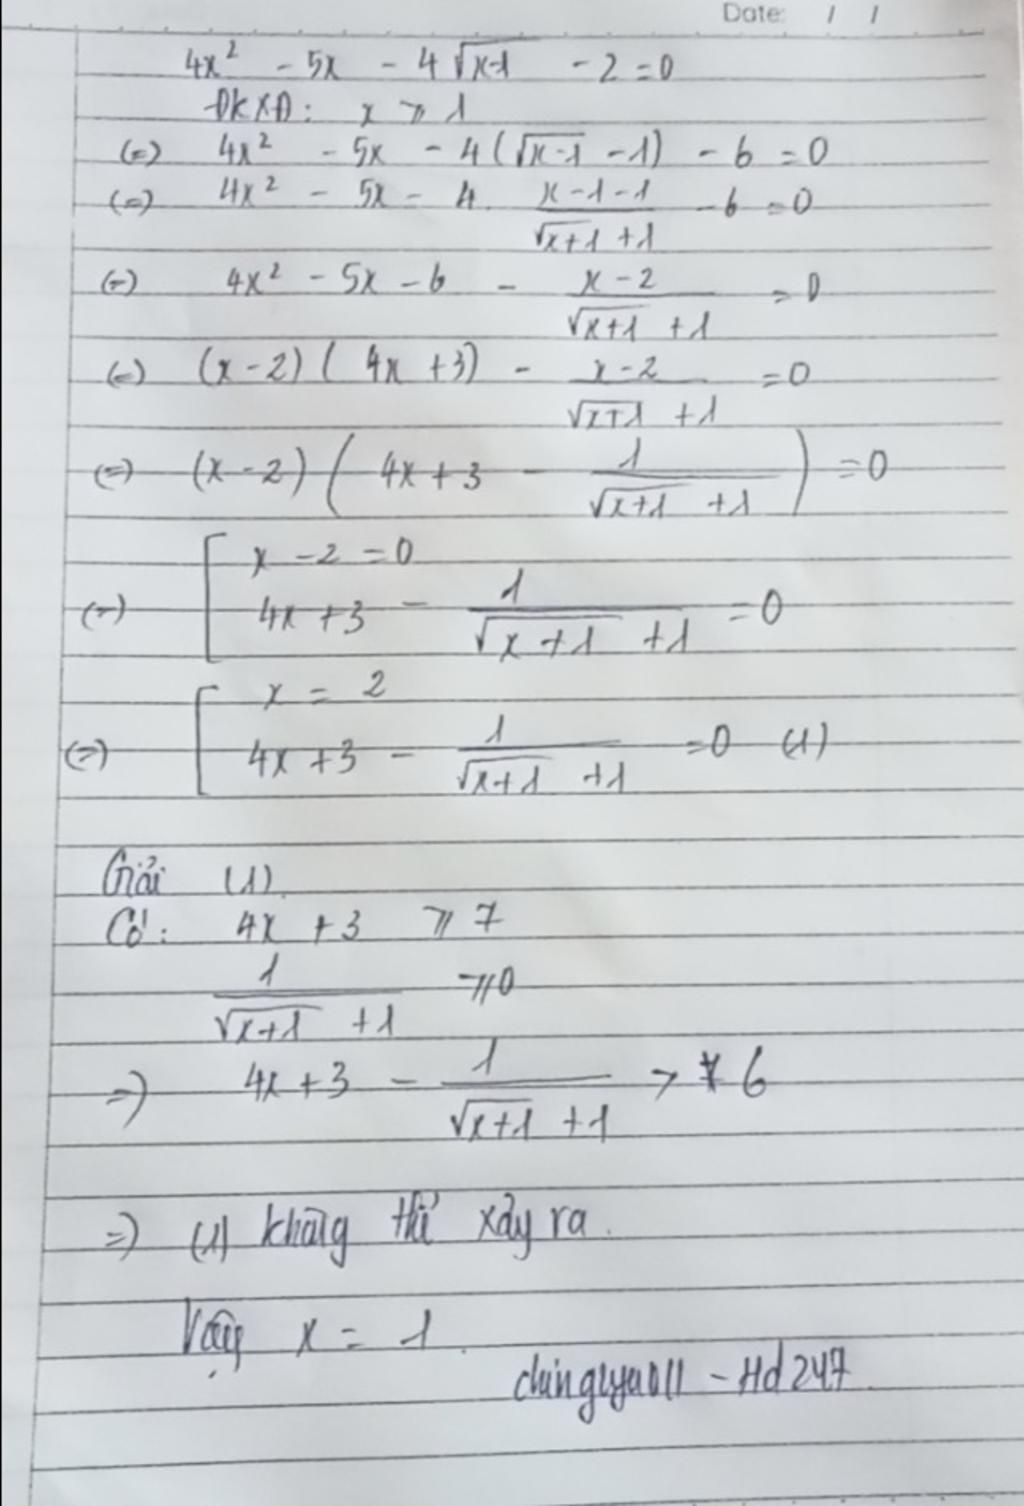 Date: / /
4x² - 5x - 4√(x-1) - 2 = 0
ĐKXĐ: x ⩾ 1
(=) 4x² - 5x - 4(√(x-1) - 1) - 6 = 0
(=) 4x² - 5x - 4. (x-1-1)/(√(x+1) + 1) - 6 = 0
(=) 4x² - 5x - 6 - (x-2)/(√(x+1) + 1) = 0
(=) (x-2)(4x+3) - (x-2)/(√(x+1) + 1) = 0
(=) (x-2)(4x+3 - 1/(√(x+1) + 1)) = 0
(=) [ x - 2 = 0
4x + 3 - 1/(√(x+1) + 1) = 0
(=) [ x = 2
4x + 3 - 1/(√(x+1) + 1) = 0 (1)
Giải (1)
Có: 4x + 3 ⩾ 7
1/(√(x+1) + 1) ⩾ 0
=) 4x + 3 - 1/(√(x+1) + 1) > 6
=) (1) không thể xảy ra.
Vậy x = 1.